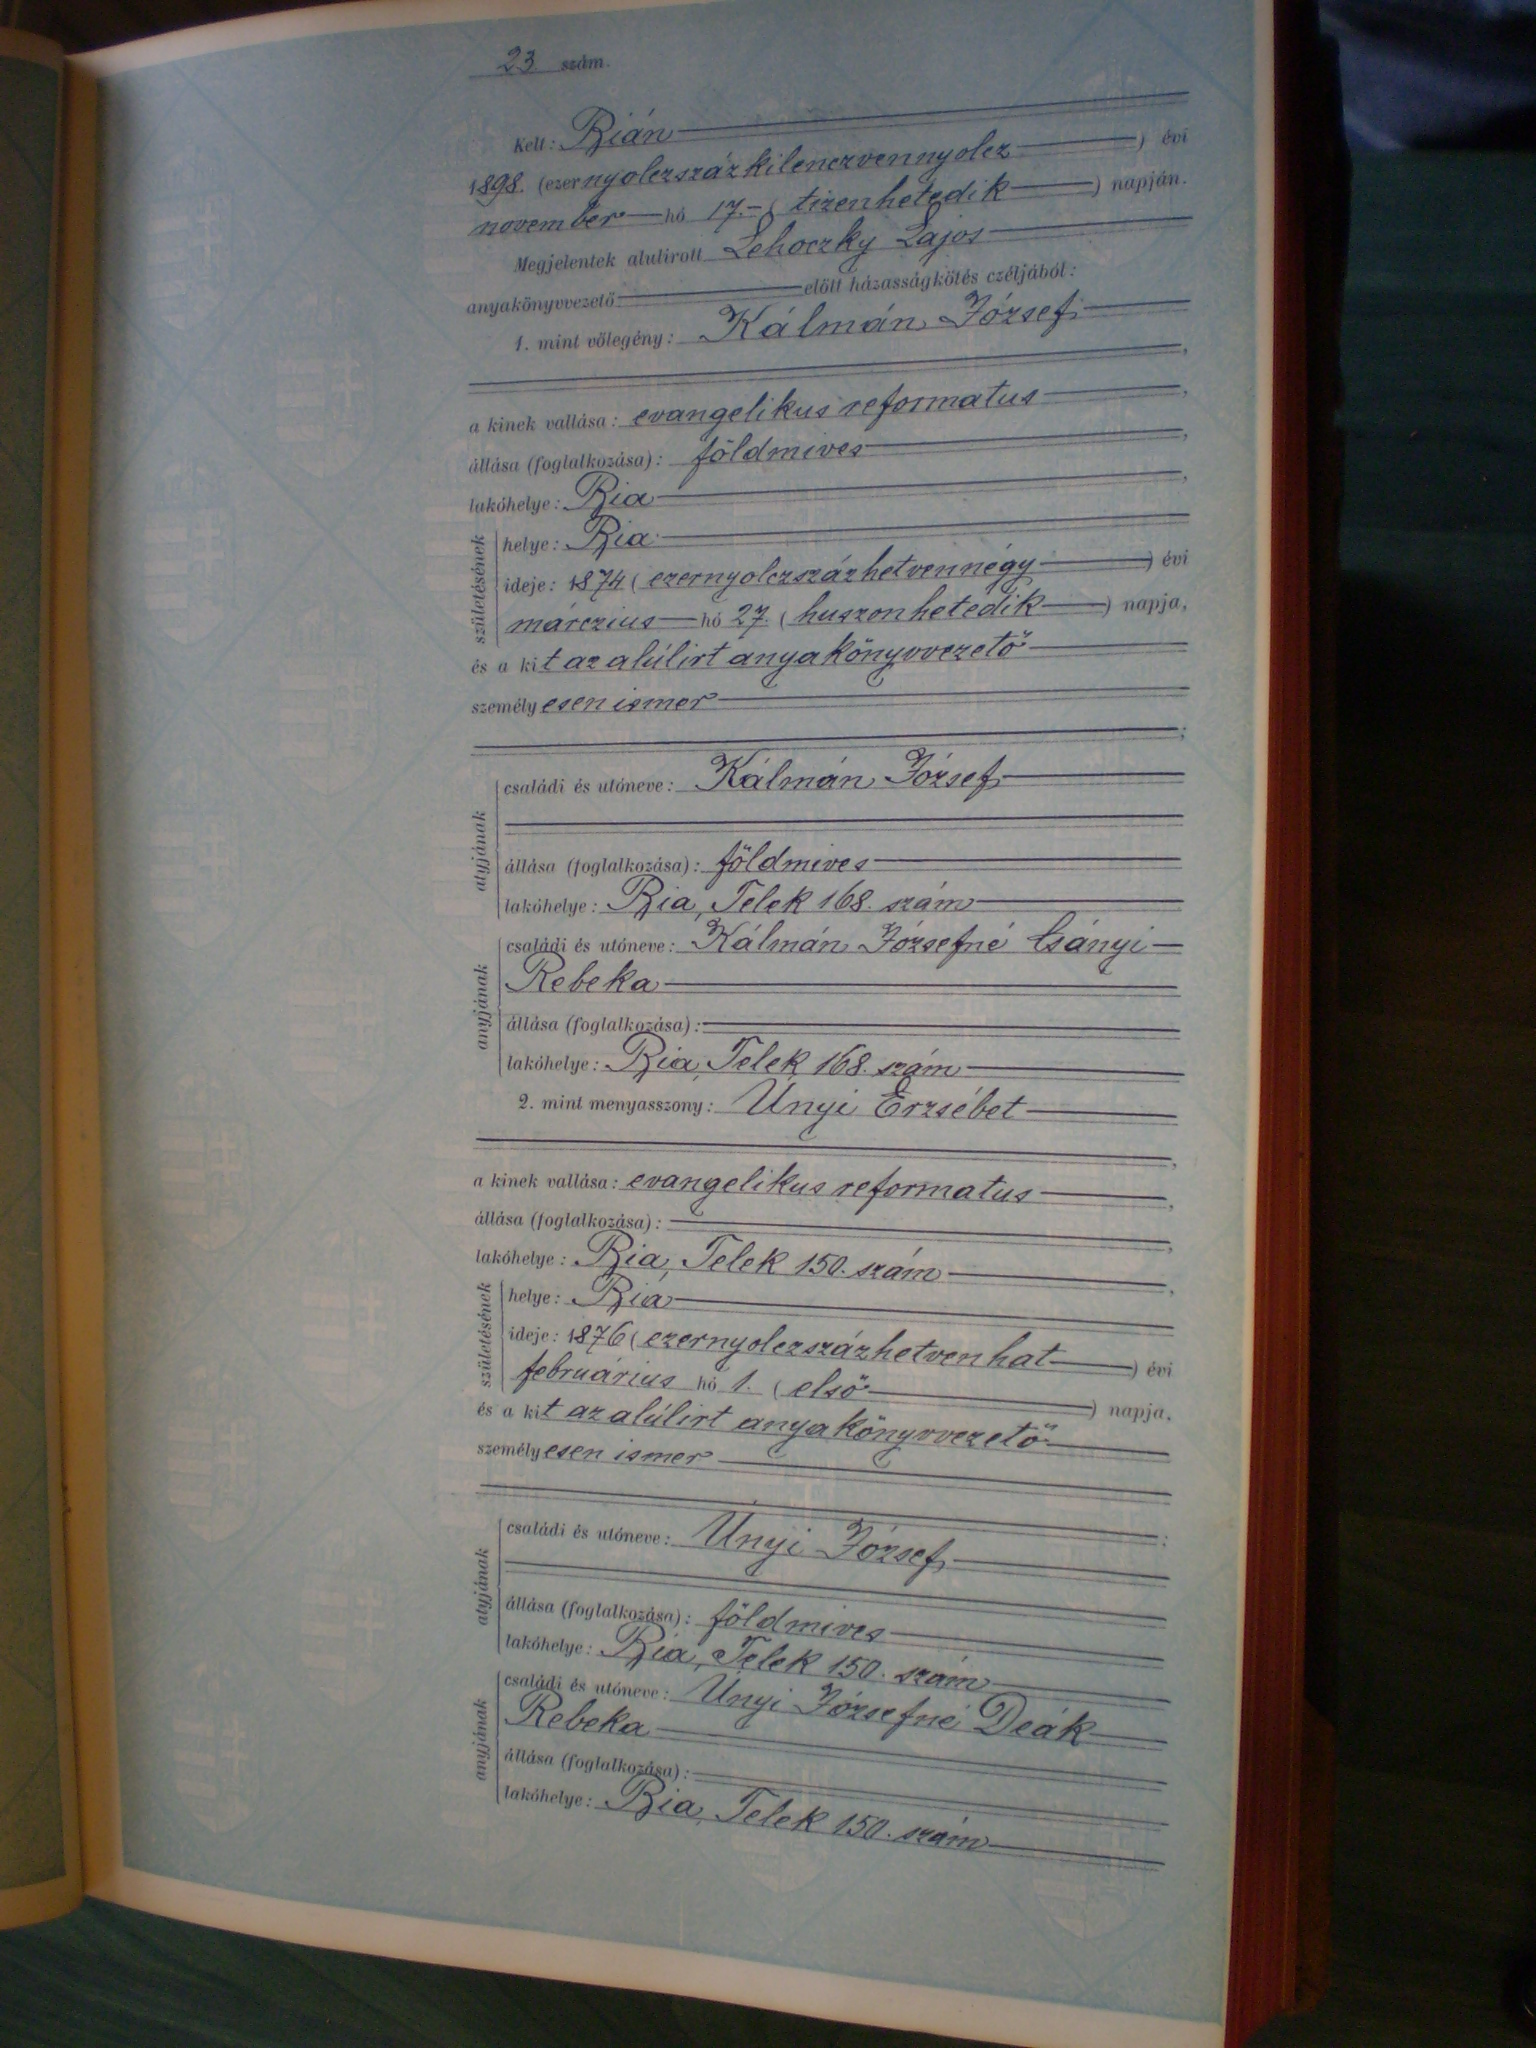 23. szám.
Kelt: Bián
1898. (ezernyolczszázkilenczvennyolcz) évi
november hó 17. (tizenhetedik) napján.
Megjelentek alulirott Lehoczky Lajos
anyakönyvvezető előtt házasságkötés czéljából:
1. mint vőlegény: Kálmán József
a kinek vallása: evangelikus reformatus,
állása (foglalkozása): földmives,
lakóhelye: Bia,
születésének
helye: Bia
ideje: 1874 (ezernyolczszázhetvennégy) évi
márczius hó 27. (huszonhetedik) napja,
és a kit az alúlirt anyakönyvvezető
személyesen ismer
;
atyjának
családi és utóneve: Kálmán József
állása (foglalkozása): földmives
lakóhelye: Bia, Telek 168. szám
anyjának
családi és utóneve: Kálmán Józsefné Csányi
Rebeka
állása (foglalkozása):
lakóhelye: Bia, Telek 168. szám
2. mint menyasszony: Únyi Erzsébet
,
a kinek vallása: evangelikus reformatus,
állása (foglalkozása): ,
lakóhelye: Bia, Telek 150. szám,
születésének
helye: Bia
ideje: 1876 (ezernyolczszázhetvenhat) évi
februárius hó 1. (első) napja,
és a kit az alúlirt anyakönyvvezető
személyesen ismer
;
atyjának
családi és utóneve: Únyi József
állása (foglalkozása): földmives
lakóhelye: Bia, Telek 150. szám
anyjának
családi és utóneve: Únyi Józsefné Deák
Rebeka
állása (foglalkozása):
lakóhelye: Bia, Telek 150. szám